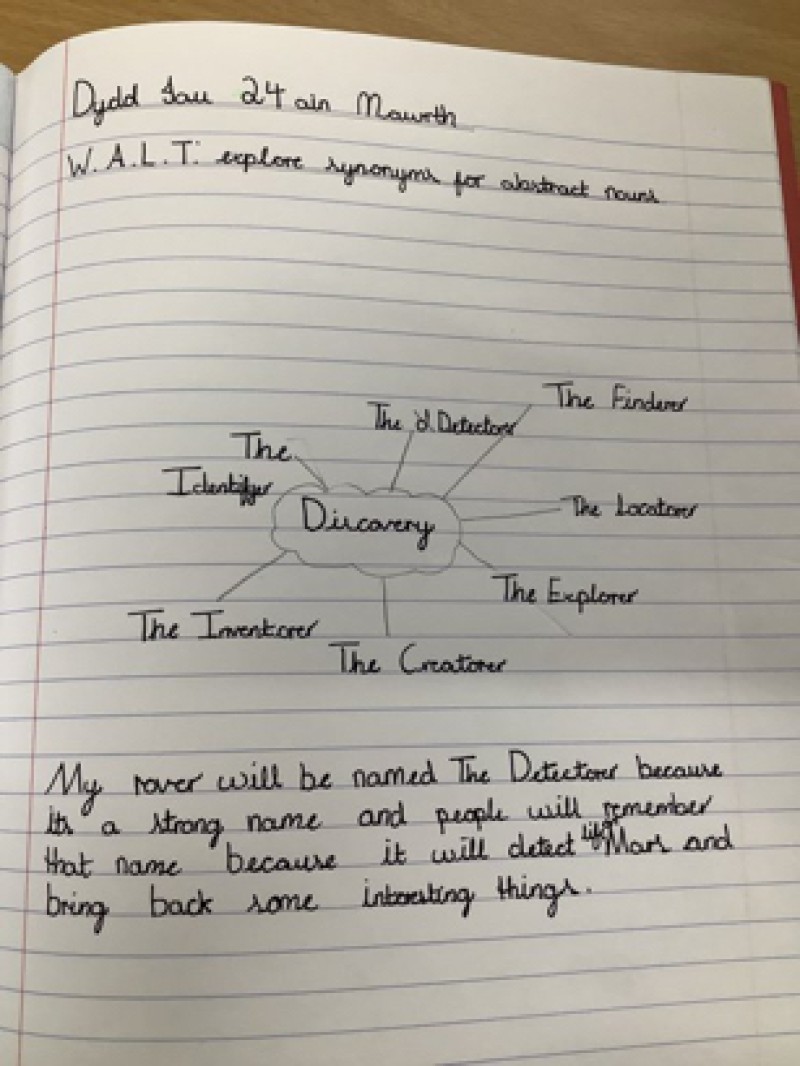 Dydd Iau 24ain Mawrth
W.A.L.T: explore synonyms for abstract nouns
The Finderer
The Detectorer
The
Identifyer
Discovery
The Locatorer
The Explorer
The Inventorer
The Creatorer
My rover will be named The Detectorer because
its a strong name and people will remember
that name because it will detect Mars and
bring back some interesting things.